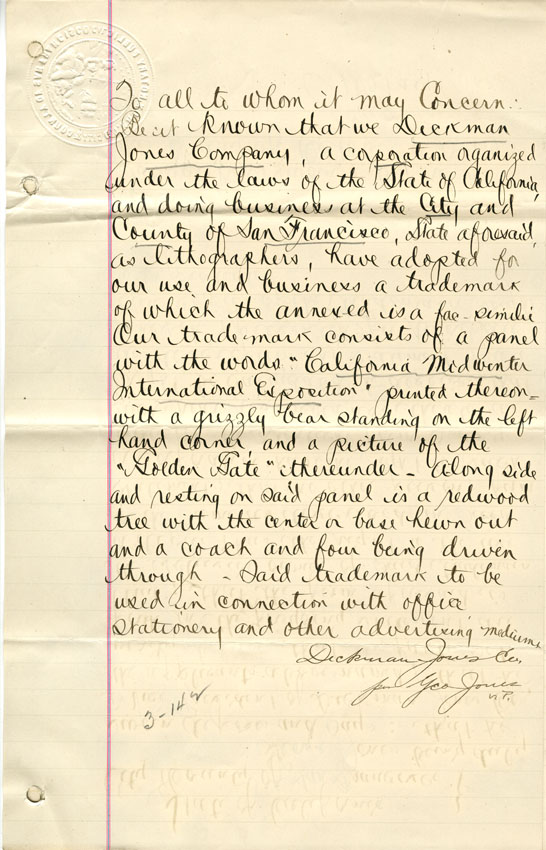 To all to whom it may Concern:
Be it known that we Dickman
Jones Company, a corporation organized
under the laws of the State of California,
and doing business at the City and
County of San Francisco, State aforesaid,
as lithographers, have adopted for
our use and business a trademark
of which the annexed is a fac-simile
Our trade-mark consists of a panel
with the words "California Midwinter
International Exposition" printed thereon-
with a grizzly bear standing on the left
hand corner, and a picture of the
"Golden Gate" thereunder - Along side
and resting on said panel is a redwood
tree with the center or base hewn out
and a coach and four being driven
through - Said trademark to be
used in connection with office
stationery and other advertising mediums
Dickman Jones Co.
per Geo Jones
V.P.
3-14